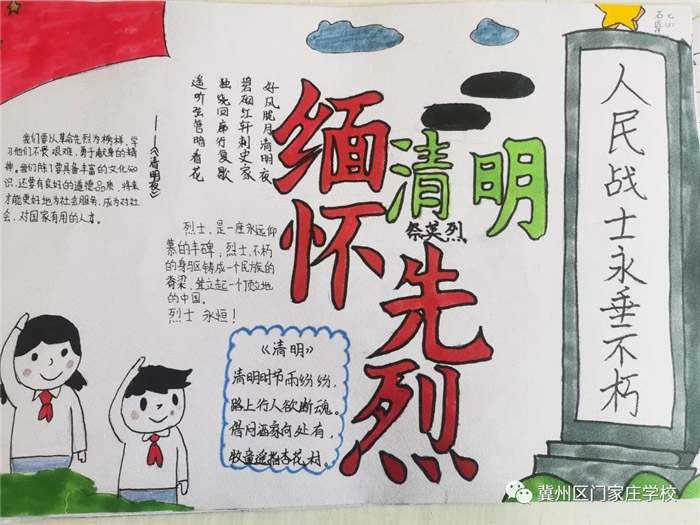 缅怀先烈
清明
祭英烈
人民战士永垂不朽
好风胧月清明夜
碧砌红轩刺史家
独绕回廊行复歇
遥听弦管暗看花
——《清明夜》
我们要以革命先烈为榜样，学
习他们不畏艰难，勇于献身的精
神。我们除了要具备丰富的文化知
识，还要有良好的道德品质，将来
才能更好地为社会服务，成为对社
会、对国家有用的人才。
烈士，是一座永远仰
慕的丰碑；烈士，不朽
的身躯铸成一个民族的
脊梁，耸立起一个顶立地
的中国。
烈士 永恒！
《清明》
清明时节雨纷纷，
路上行人欲断魂。
借问酒家何处有，
牧童遥指杏花村。
冀州区门家庄学校